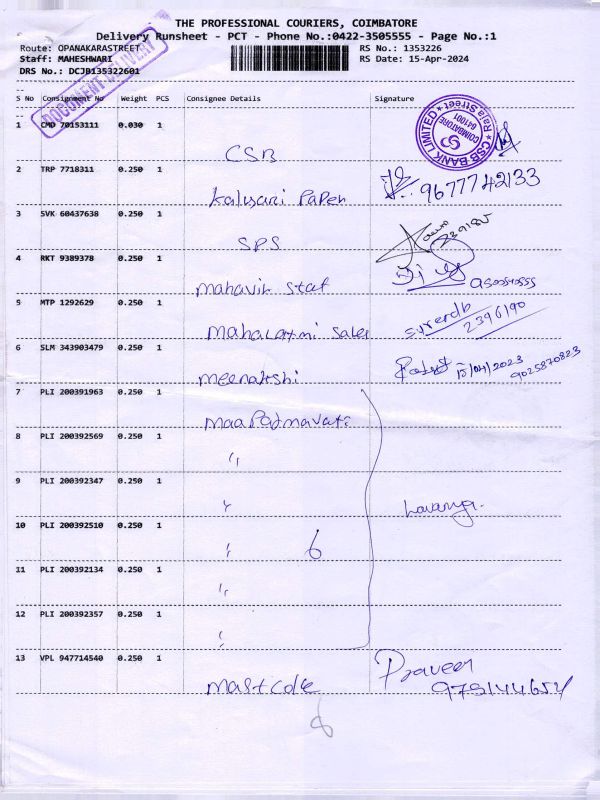 THE PROFESSIONAL COURIERS, COIMBATORE
Delivery Runsheet - PCT - Phone No.:0422-3505555 - Page No.:1
Route: OPANAKARASTREET RS No.: 1353226
Staff: MAHESHWARI RS Date: 15-Apr-2024
DRS No.: DCJB135322601
DOCUMENT DELIVERY
S No Consignment No Weight PCS Consignee Details Signature
1 CMD 70153111 0.030 1
CSB
CSB BANK LIMITED Raja Street COIMBATORE 641001
2 TRP 7718311 0.250 1
Kalysari Paper 9677742133
3 SVK 60437638 0.250 1
SPS
4 RKT 9389378 0.250 1
mahavir staf
5 MTP 1292629 0.250 1
mahalaxmi sales 2396190
6 SLM 343903479 0.250 1
meenakshi 15/04/2023 9025870823
7 PLI 200391963 0.250 1
maa Padmavati
8 PLI 200392569 0.250 1
"
9 PLI 200392347 0.250 1
" Lavanya.
10 PLI 200392510 0.250 1
" 6
11 PLI 200392134 0.250 1
"
12 PLI 200392357 0.250 1
"
13 VPL 947714540 0.250 1
Praveen
8